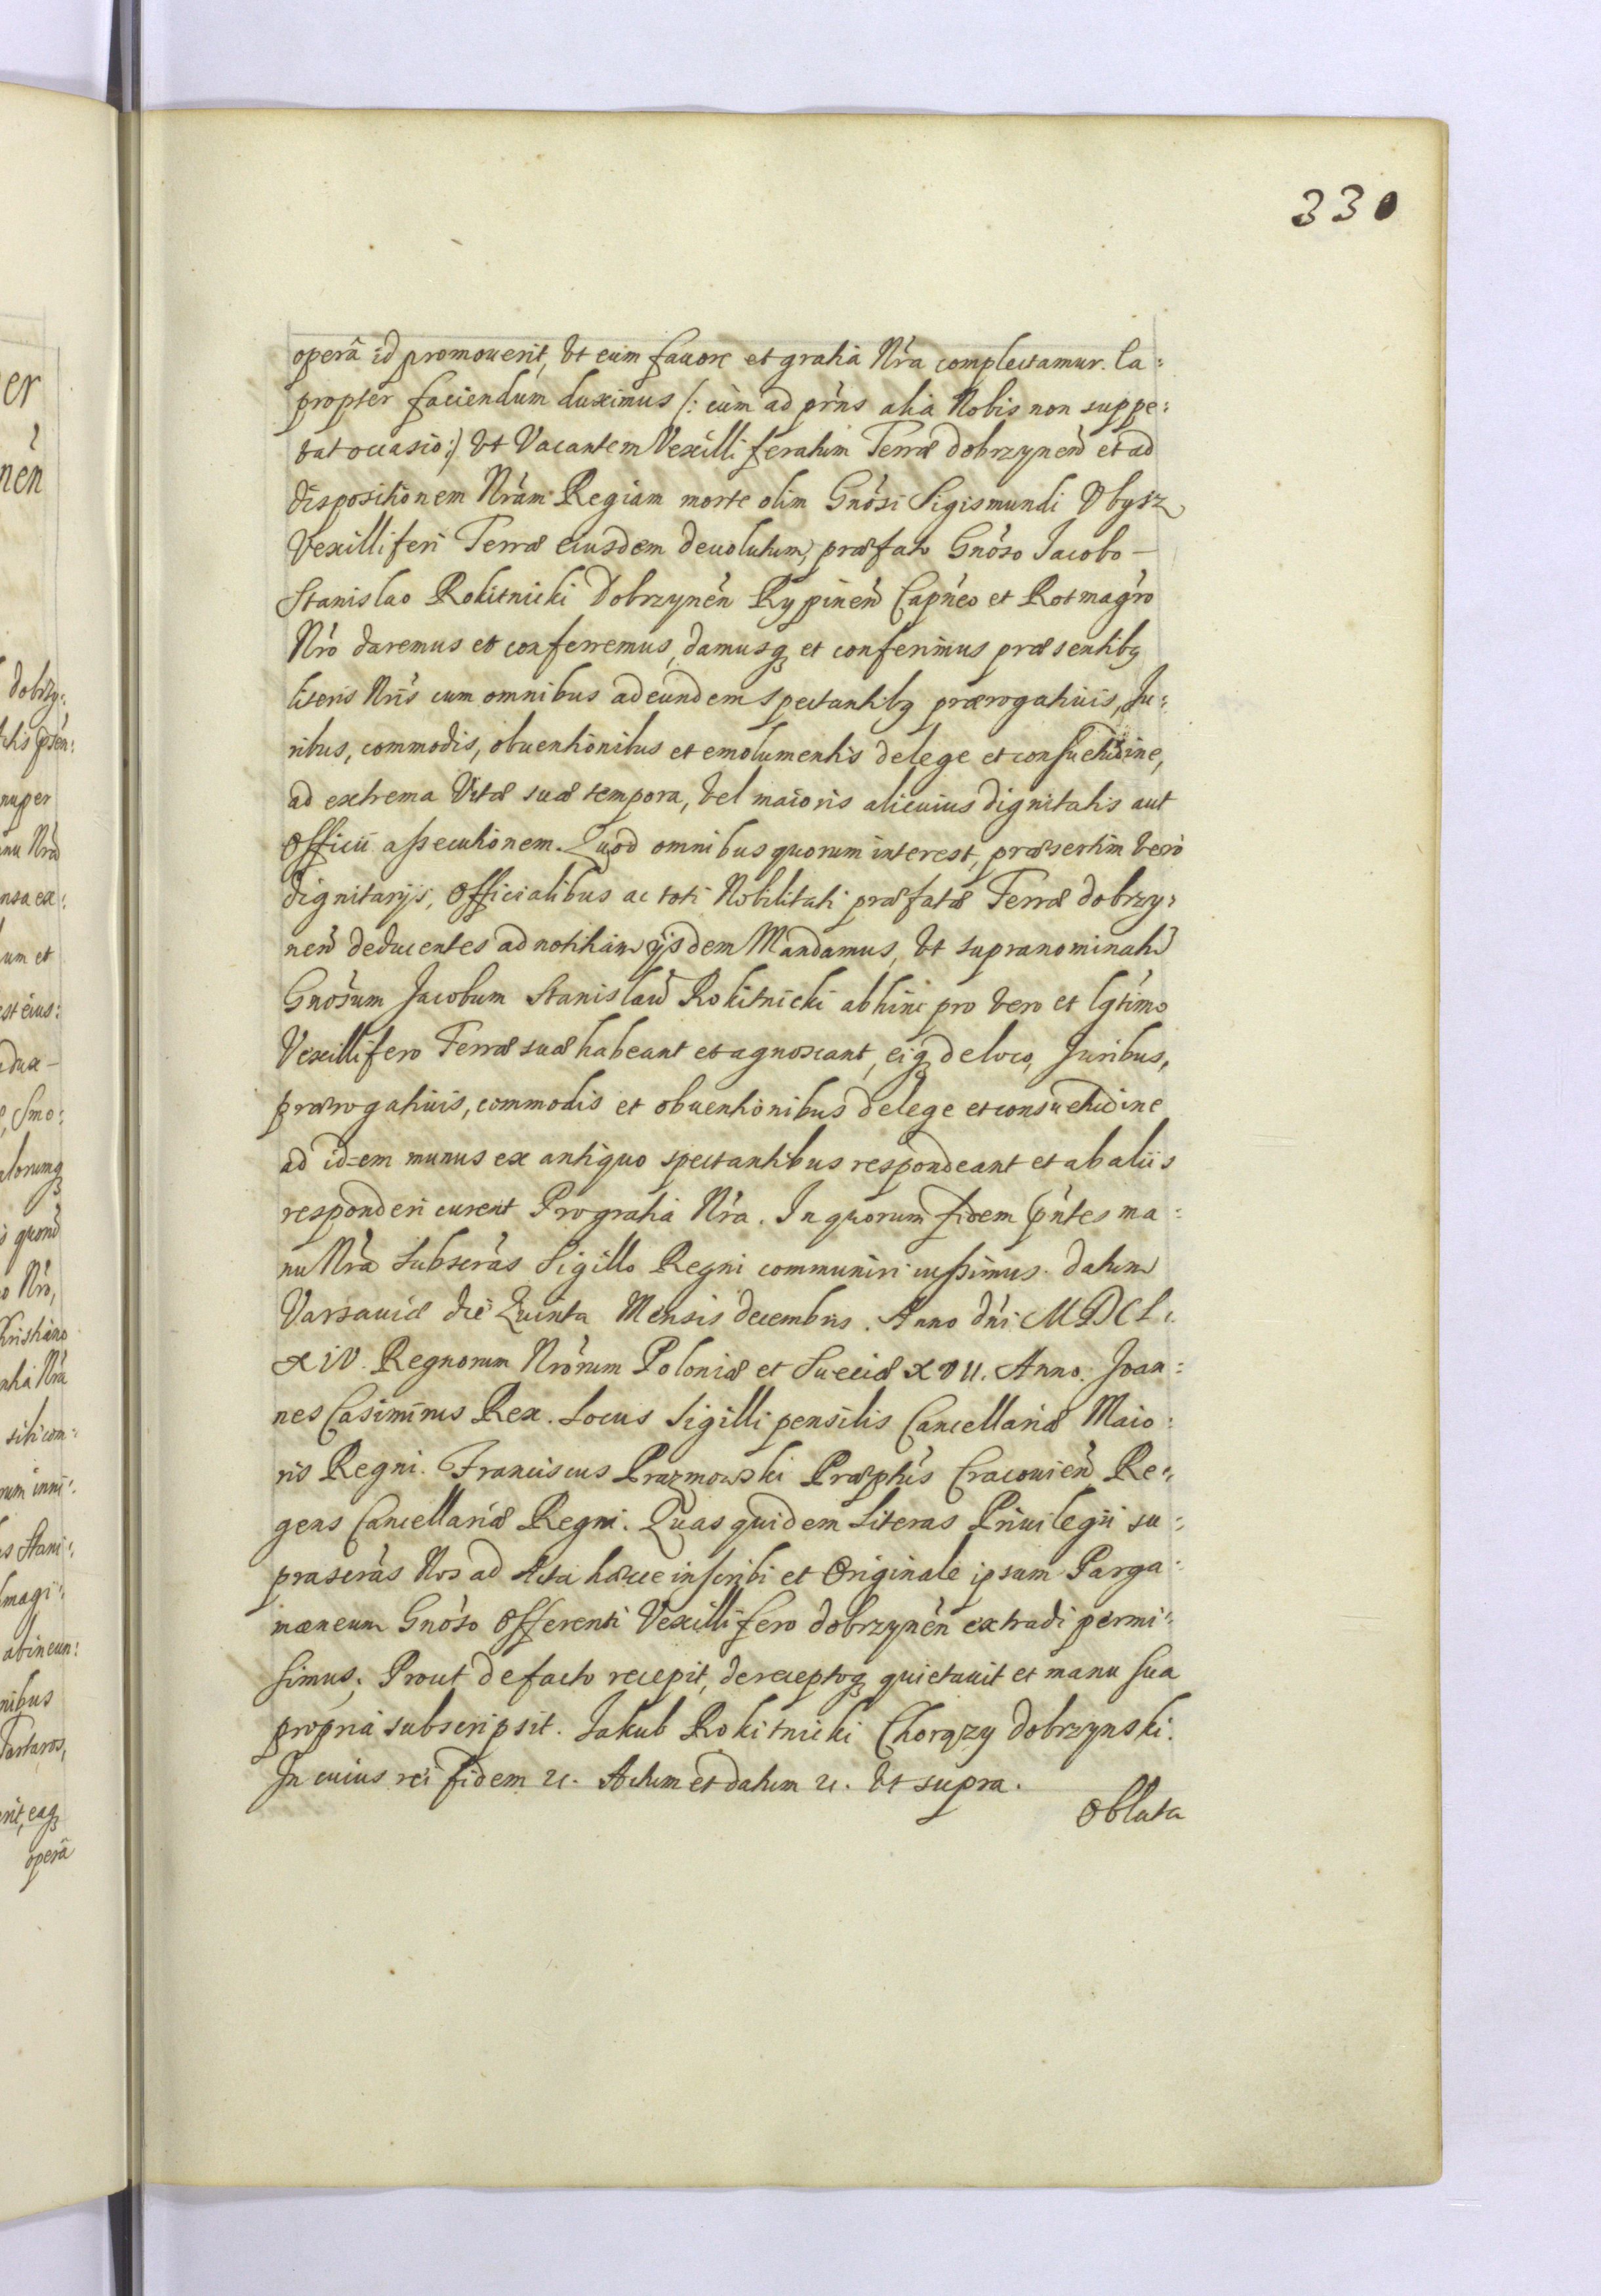 330
operâ id promouerit, Vt eum fauore et gratia Nrâ complectamur. Ea:
propter faciendum duximus /: cùm ad prñs alia Nobis non suppe:
tat occasio :/ Vt Vacantem Vexilliferatum Terræ dobrzyneñ et ad
dispositionem Nrâm Regiam morte olim Gnôsi Sigismundi Vbysz
Vexilliferi Terræ eiusdem deuolutum, præfato Gnôso Jacobo —
Stanislao Rokitnicki Dobrzyneñ Rypineñ Capñeo et Rotmagr̃o
Nrô daremus et conferremus, damusq3 et conferimus præsentib9
literis Nrĩs cum omnibus ad eundem spectantib9 prærogatiuis, Ju:
ribus, commodis, obuentionibus et emolumentis de lege et consuetudine,
ad extrema Vitæ suæ tempora, Vel maioris alicuius dignitatis aut
Officii assecutionem. Quod omnibus quorum interest, præsertim Verò
dignitarijs, Officialibus ac toti Nobilitati præfatæ Terræ dobrzy:
neñ deducentes ad notitiam ijsdem Mandamus, Vt supranominatũ
Gnôsum Jacobum Stanislaũ Rokitnicki abhinc pro Vero et lgtimo
Vexillifero Terræ suæ habeant et agnoscant, eiq3 de loco, Juribus,
prærogatiuis, commodis et obuentionibus de lege et consuetudine
ad id=em munus ex antiquo spectantibus respondeant et ab aliis
responderi curent Pro gratia Nrâ. In quorum fidem pñtes ma:
nu Nrâ Subscrâs Sigillo Regni communiri iussimus. datum
Varsauiæ die Quinta Mensis decembris. Anno dñi MDCL:
XIV. Regnorum Nrôrum Poloniæ et Sueciæ XVII. Anno. Joan:
nes Casimirus Rex. Locus Sigilli pensilis Cancellariæ Maio:
ris Regni. Franciscus Prazmowski Præptũs Cracouieñ Re:
gens Cancellariæ Regni. Quas quidem Literas Priuilegii su:
prascrâs Nos ad Acta hæcce inscribi et Originale ipsum Parga:
mæneum Gnôso Offerenti Vexillifero dobrzyneñ extradi permi:
simus. Prout de facto recepit, de receptoq3 quietauit et manu sua
propria subscripsit. Jakub Rokitnicki Chorązy dobrzynski.
In cuius rei fidem &c. Actum et datum &c. Vt supra.
Oblata